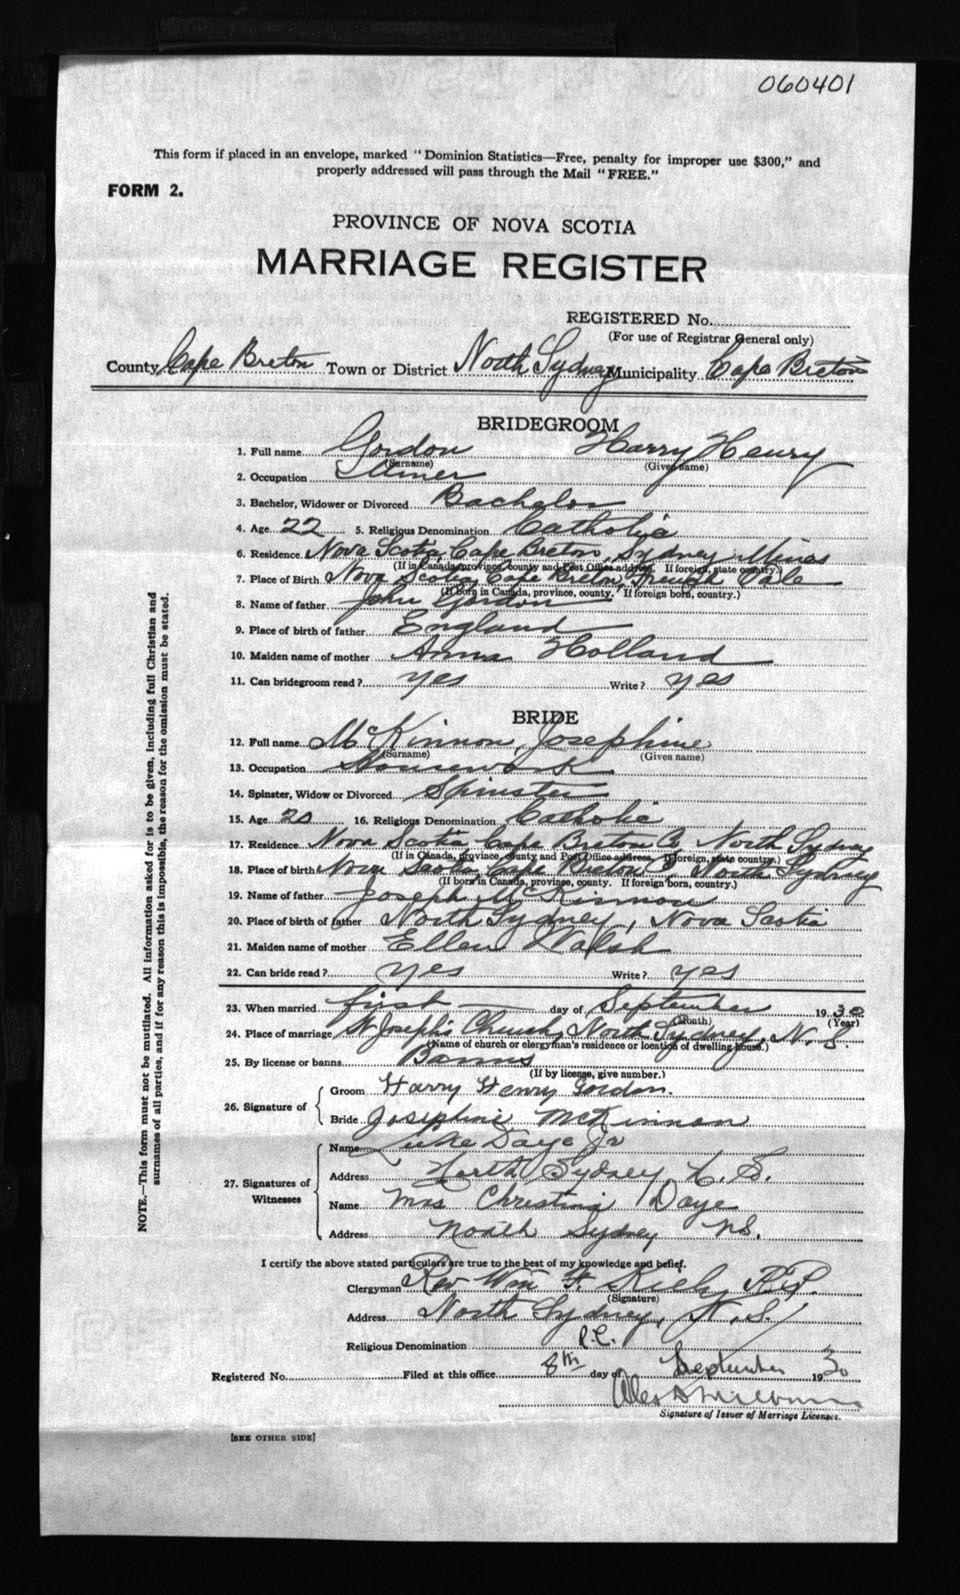 060401
This form if placed in an envelope, marked "Dominion Statistics—Free, penalty for improper use $300," and
properly addressed will pass through the Mail "FREE."
FORM 2.
PROVINCE OF NOVA SCOTIA
MARRIAGE REGISTER
REGISTERED No.
(For use of Registrar General only)
County Cape Breton Town or District North Sydney Municipality Cape Breton
BRIDEGROOM
1. Full name Gordon Harry Henry
(Surname) (Given name)
2. Occupation
3. Bachelor, Widower or Divorced Bachelor
4. Age 22 5. Religious Denomination Catholic
6. Residence Nova Scotia, Cape Breton, Sydney Mines
(If in Canada, province, county and Post Office address. If foreign, state country.)
7. Place of Birth Nova Scotia, Cape Breton, French Vale
(If born in Canada, province, county. If foreign born, country.)
8. Name of father John Gordon
9. Place of birth of father England
10. Maiden name of mother Anna Holland
11. Can bridegroom read? yes Write? yes
BRIDE
12. Full name McKinnon, Josephine
(Surname) (Given name)
13. Occupation Housework
14. Spinster, Widow or Divorced Spinster
15. Age 20 16. Religious Denomination Catholic
17. Residence Nova Scotia, Cape Breton Co, North Sydney
(If in Canada, province, county and Post Office address. If foreign, state country.)
18. Place of birth Nova Scotia, Cape Breton C, North Sydney
(If born in Canada, province, county. If foreign born, country.)
19. Name of father Joseph McKinnon
20. Place of birth of father North Sydney, Nova Scotia
21. Maiden name of mother Ellen Walsh
22. Can bride read? yes Write? yes
23. When married first day of September 1930
(Month) (Year)
24. Place of marriage St Joseph's Church, North Sydney, N. S.
(Name of church or clergyman's residence or location of dwelling house.)
25. By license or banns Banns
(If by license, give number.)
26. Signature of
Groom Harry Henry Gordon.
Bride Josephine McKinnon
27. Signatures of Witnesses
Name Luke Daye Jr
Address North Sydney N. S.
Name Mrs Christina Daye
Address North Sydney NS.
I certify the above stated particulars are true to the best of my knowledge and belief.
Clergyman Rev Wm F. Kiely P.P.
(Signature)
Address North Sydney, N. S.
Religious Denomination R.C.
Registered No. Filed at this office 8th day of September 1930
Signature of Issuer of Marriage Licenses.
[SEE OTHER SIDE]
NOTE.—This form must not be mutilated. All information asked for is to be given, including full Christian and
surnames of all parties, and if for any reason this is impossible, the reason for the omission must be stated.